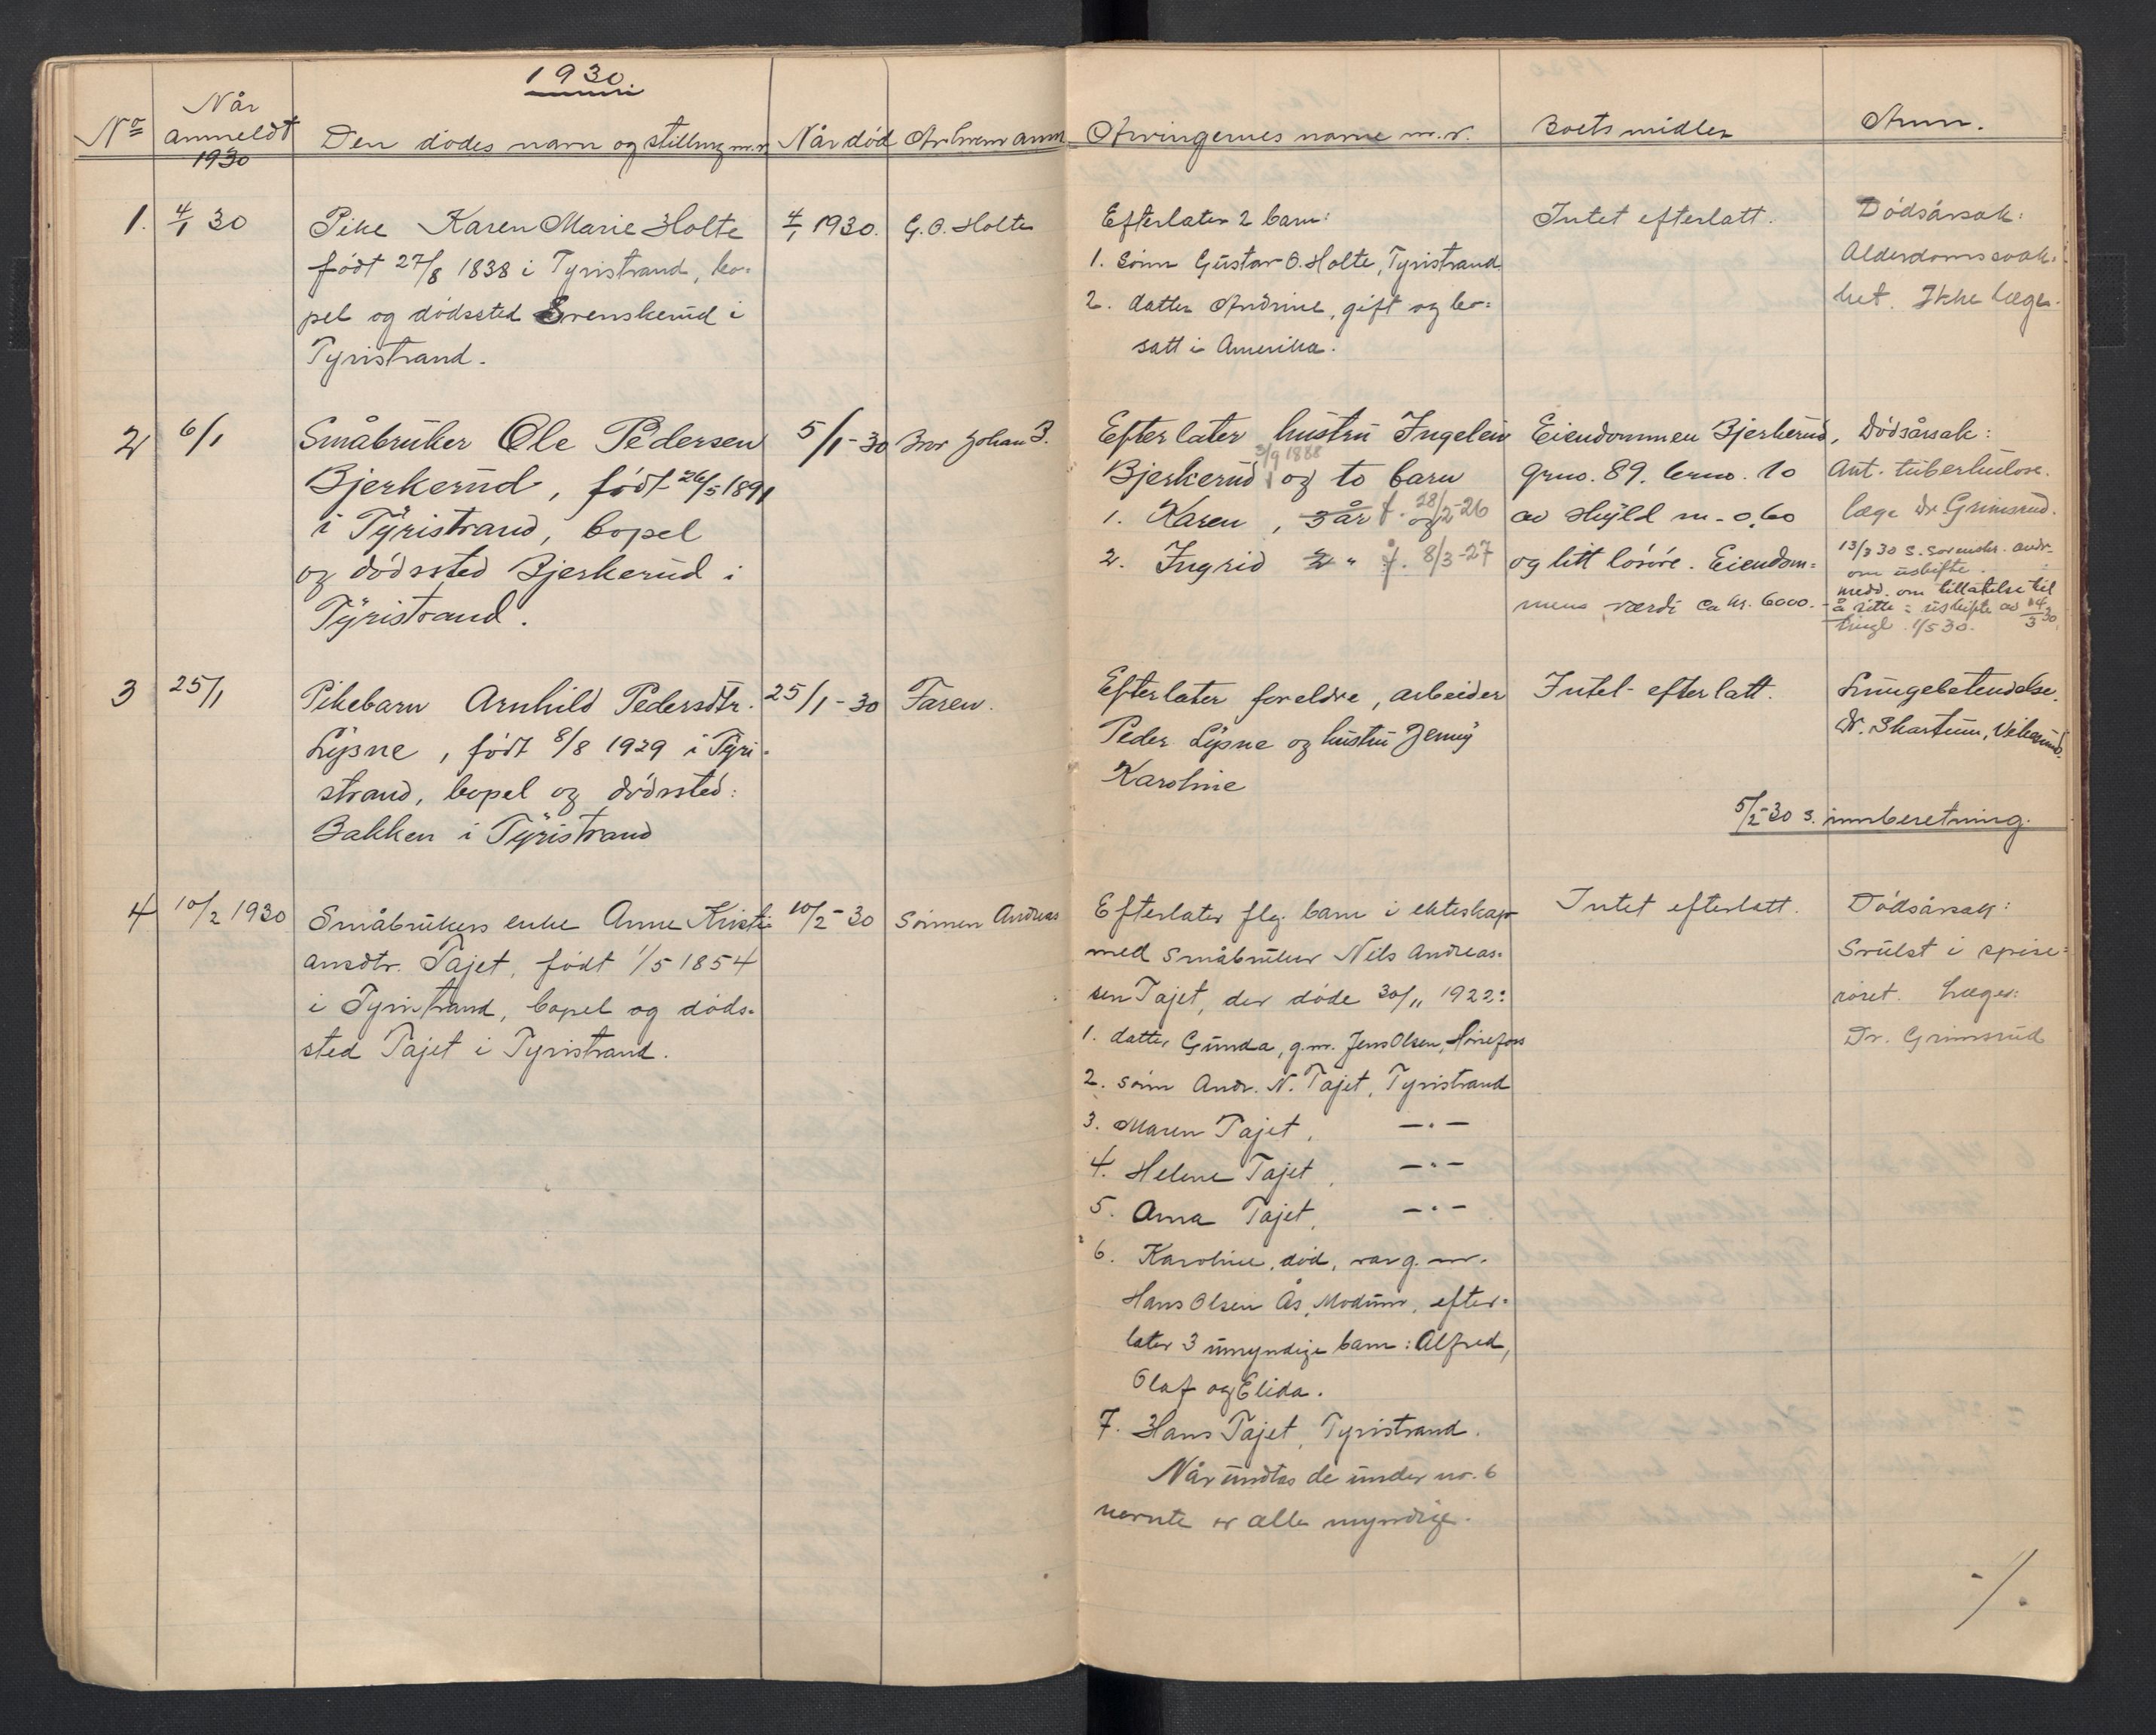 1930.
No
Når
anmeldt
1930
Den dødes navn og stilling m.v.
Når død
Av hvem anm.
Arvingernes navne m.v.
Boets midler
Anm.
1.
4/1 30
Pike Karen Marie Holte
født 27/8 1838 i Tyristrand, bo-
pel og dødssted Svenskerud i
Tyristrand.
4/1 1930.
G. O. Holte
Efterlater 2 barn:
1. sønn Gustav O. Holte, Tyristrand
2. datter Andrine, gift og bo-
satt i Amerika.
Intet efterlatt.
Dødsårsak:
Alderdomssvak-
het. Ikke læge.
2
6/1
Småbruker Ole Pedersen
Bjerkerud, født 26/5 1891
i Tyristrand, bopel
og dødssted Bjerkerud i
Tyristrand.
5/1-30
Bror Johan B.
Efterlater hustru Ingeleiv
3/9 1888
Bjerkerud og to barn
1. Karen, 3 år f. 28/2-26 og
2. Ingrid 2 " f. 8/3-27
Eiendommen Bjerkerud,
grno. 89. brno. 10
av skyld m - 0,60
og litt løsøre. Eiendom-
mens værdi ca kr. 6000.-
Dødsårsak:
Ant. tuberkulose.
læge dr. Grimsrud.
13/3 30 s. sorenskr. andr.
om uskifte.
medd. om tillatelse til
å sitte i uskifte av 14/3 30,
tingl. 1/5 30.
3
25/1
Pikebarn Arnhild Pedersdtr.
Lysne, født 8/8 1929 i Tyri-
strand, bopel og dødssted:
Bakken i Tyristrand
25/1-30
Faren.
Efterlater foreldre, arbeider
Peder Lysne og hustru Jenny
Karoline
Intet efterlatt.
Lungebetendelse.
dr. Skartum, Vikersund.
5/2-30 s. innberetning.
4
10/2 1930
Småbrukers enke Anne Kristi-
ansdtr. Tajet, født 1/5 1854
i Tyristrand, bopel og døds-
sted Tajet i Tyristrand.
10/2-30
Sønnen Andreas
Efterlater flg. barn i ekteskap
med småbruker Nils Andreas-
sen Tajet, der døde 30/11 1922:
1. datter Gunda, g.m. Jens Olsen, Hønefoss
2. sønn Andr. N. Tajet, Tyristrand
3. Maren Tajet, —"—
4. Helene Tajet, —"—
5. Anna Tajet, —"—
6. Karoline, død, var g. m.
Hans Olsen Ås, Modum, efter-
later 3 umyndige barn: Alfred,
Olaf og Elida.
7. Hans Tajet, Tyristrand.
Når undtas de under no. 6
nevnte er alle myndige.
Intet efterlatt.
Dødsårsak:
Svulst i spise-
røret. Læge:
Dr. Grimsrud
-/.